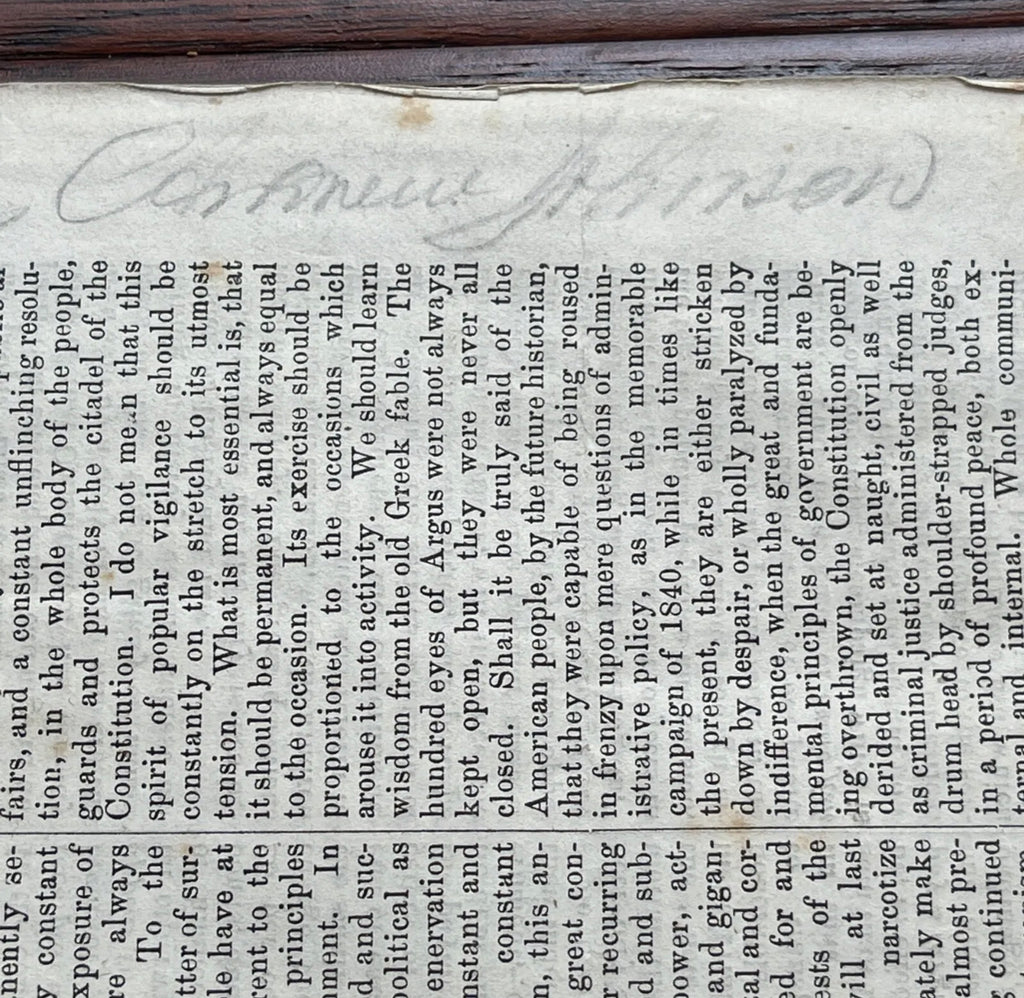 Johnson
se-
constant
of
always
To the
of sur-
have at
to the
principles
In
and suc-
political as
enervation
and
constant
this an-
great con-
recurring
and sub-
power, act-
and gigan-
and cor-
for and
of the
at last
narcotize
make
almost pre-
continued
fairs, and a constant unflinching resolu-
tion, in the whole body of the people,
guards and protects the citadel of the
Constitution. I do not mean that this
spirit of popular vigilance should be
constantly on the stretch to its utmost
tension. What is most essential is, that
it should be permanent, and always equal
to the occasion. Its exercise should be
proportioned to the occasions which
arouse it into activity. We should learn
wisdom from the old Greek fable. The
hundred eyes of Argus were not always
kept open, but they were never all
closed. Shall it be truly said of the
American people, by the future historian,
that they were capable of being roused
in frenzy upon mere questions of admin-
istrative policy, as in the memorable
campaign of 1840, while in times like
the present, they are either stricken
down by despair, or wholly paralyzed by
indifference, when the great and funda-
mental principles of government are be-
ing overthrown, the Constitution openly
derided and set at naught, civil as well
as criminal justice administered from the
drum head by shoulder-strapped judges,
in a period of profound peace, both ex-
ternal and internal. Whole communi-